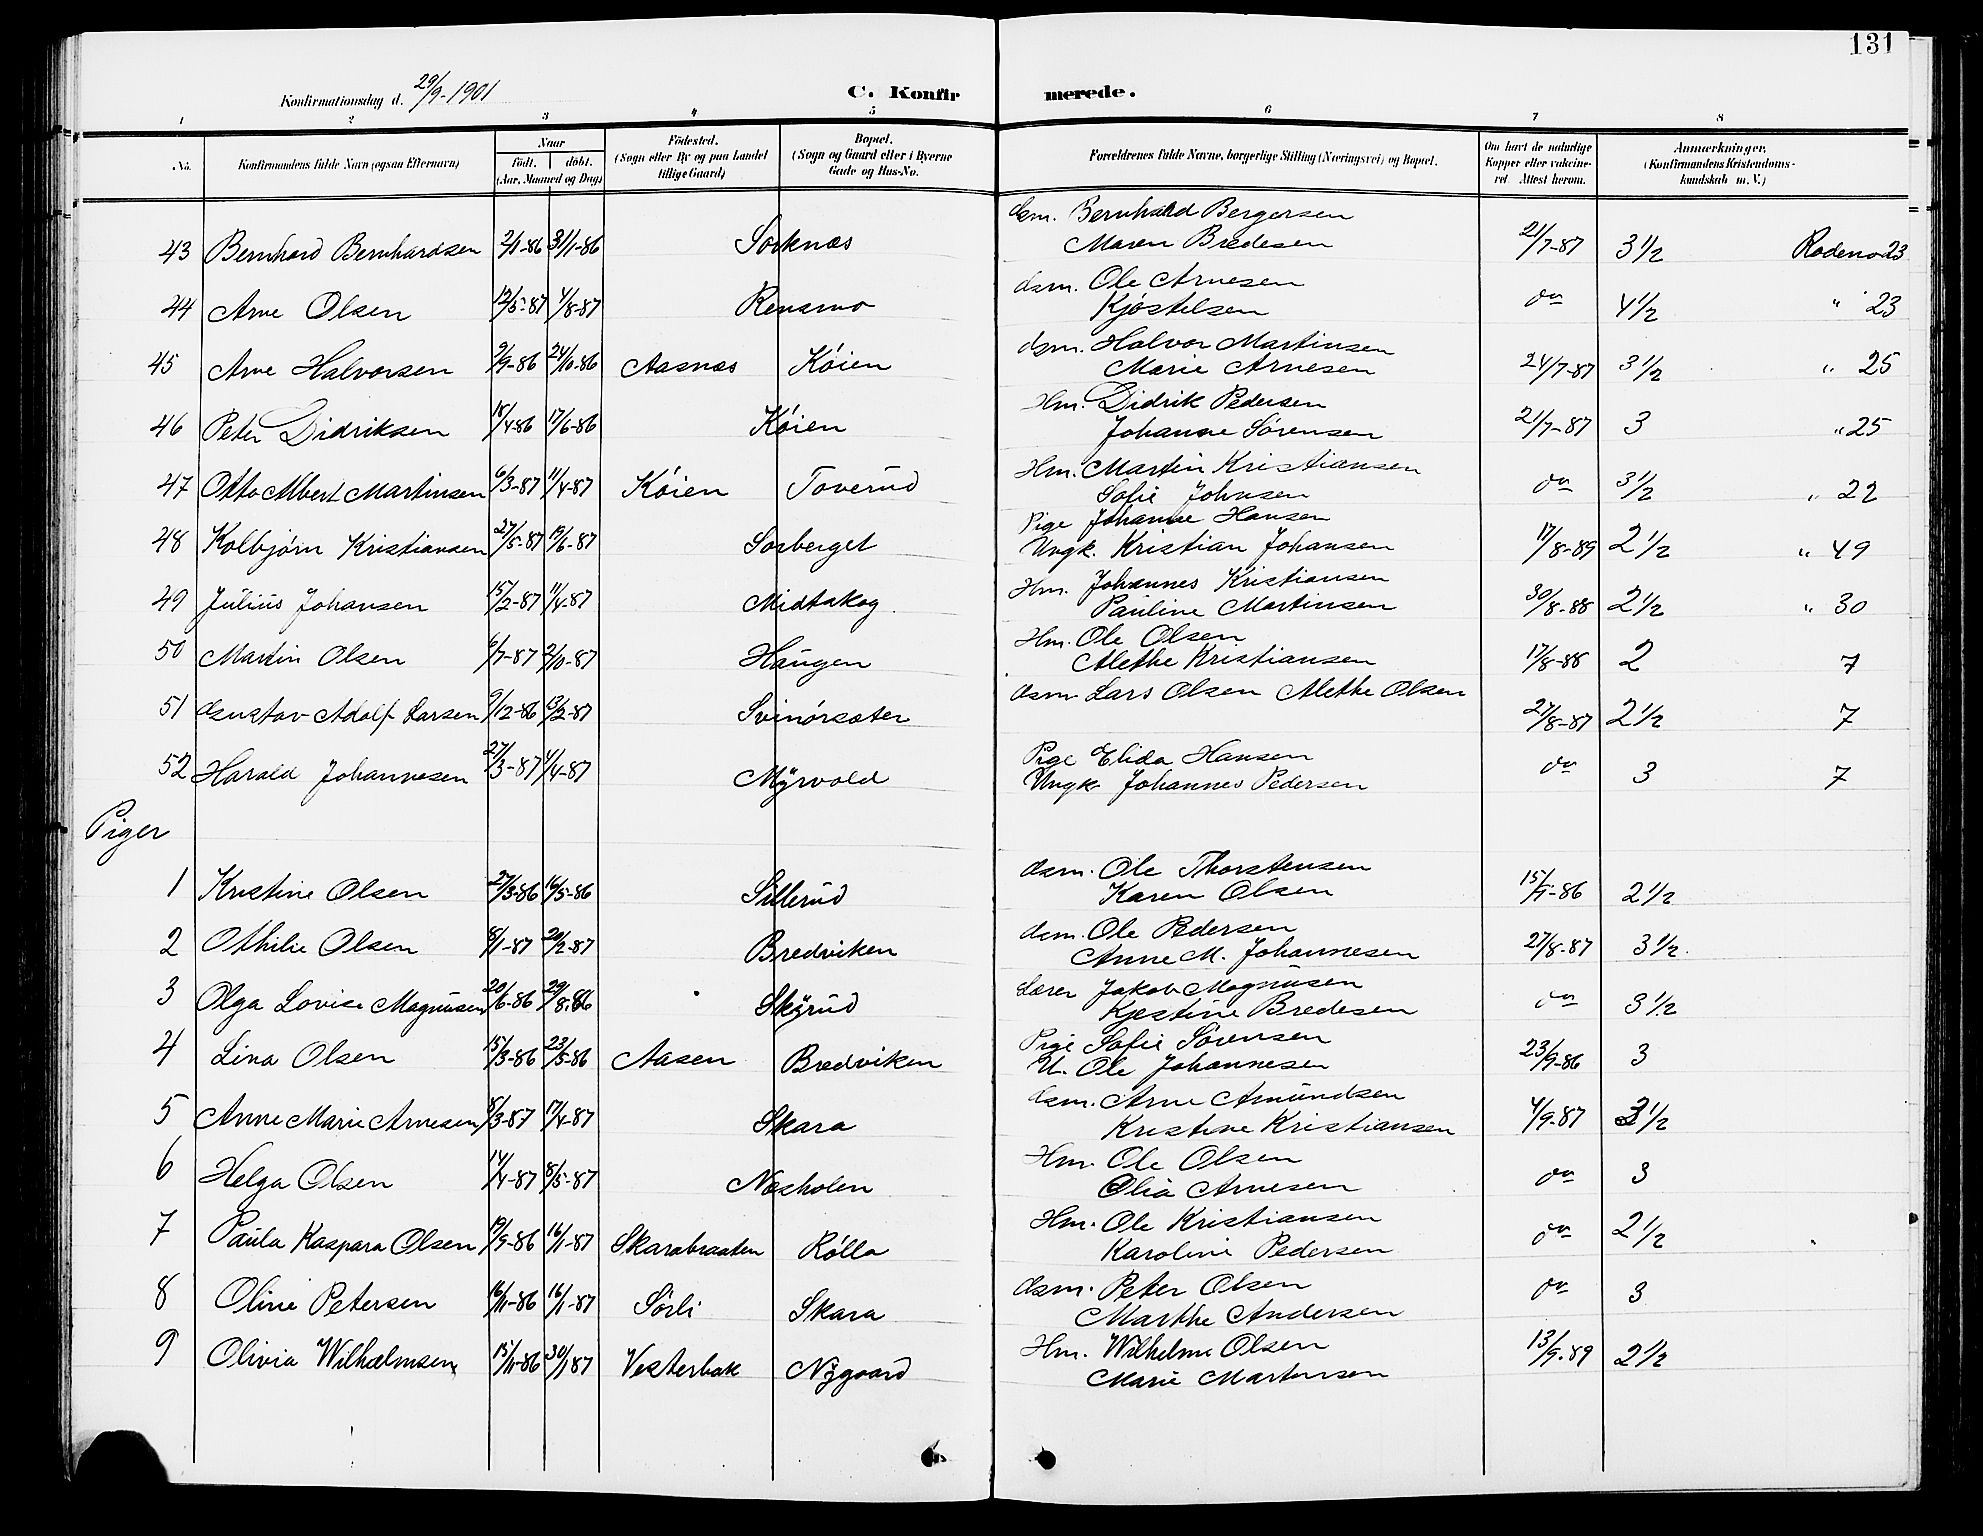 131
Konfirmationsdag d. 29/9-1901
C. Konfirmerede.
1 2 3 4 5 6 7 8
No. Konfirmandens fulde Navn (ogsaa Efternavn) Naar født. døbt. (Aar, Maaned og Dag) Fødested. (Sogn eller By og paa Landet tillige Gaard) Bopæl. (Sogn og Gaard eller i Byerne Gade og Hus-No. Forældrenes fulde Navne, borgerlige Stilling (Næringsvei) og Bopæl. Om havt de naturlige Kopper eller vakcineret. Attest herom. Anmærkninger. (Konfirmandens Kristendomskundskab m. V.)
43 Bernhard Bernhardsen 2/1-86 31/1-86 Sorknæs Gsm. Bernhard Bergersen
Maren Bredesen 21/7-87 3 1/2 Rodeno 23
44 Arne Olsen 12/5-87 4/8-87 Rensmo Gsm. Ole Arnesen
Kjøstelsen do 4 1/2 " 23
45 Arne Halvorsen 9/9-86 24/10-86 Aasnæs Køien Gsm. Halvor Martinsen
Marie Arnesen 24/7-87 3 1/2 " 25
46 Peter Didriksen 18/4-86 17/6-86 Køien Hm. Didrik Pedersen
Johanne Sørensen 21/7-87 3 " 25
47 Otto Albert Martinsen 6/3-87 11/4-87 Køien Toverud Hm. Martin Kristiansen
Sofie Johnsen do 3 1/2 " 22
48 Kolbjørn Kristiansen 27/5-87 19/6-87 Sorberget Pige Johanne Hansen
Ungk. Kristian Johansen 17/8-89 2 1/2 " 49
49 Julius Johansen 15/2-87 11/4-87 Midtskog Hm. Johannes Kristiansen
Pauline Martinsen 30/8-88 2 1/2 " 30
50 Martin Olsen 6/7-87 2/10-87 Haugen Hm. Ole Olsen
Alethe Kristiansen 17/8-88 2 7
51 Gustav Adolf Larsen 9/12-86 13/2-87 Svinørsæter Gsm Lars Olsen Alethe Olsen
27/8-87 2 1/2 7
52 Harald Johannesen 27/3-87 4/4-87 Myrvold Pige Elida Hansen
Ungk Johannes Pedersen do 3 7
Piger
1 Kristine Olsen 27/3-86 16/5-86 Sillerud Gsm. Ole Thorstensen
Karen Olsen 15/9-86 2 1/2
2 Othilie Olsen 8/1-87 20/2-87 Bredviken Gsm. Ole Pedersen
Anne M. Johannesen 27/8-87 3 1/2
3 Olga Lovise Magnusen 20/6-86 29/8-86 Skyrud Lærer Jakob Magnusen
Kjestine Bredesen do 3 1/2
4 Lina Olsen 15/3-86 23/5-86 Aasen Bredviken Pige Sofie Sørensen
U. Ole Johannesen 23/9-86 3
5 Anne Marie Arnesen 8/3-87 17/4-87 Skara Gsm. Arne Amundsen
Kristine Kristiansen 4/9-87 3 1/2
6 Helga Olsen 14/4-87 8/5-87 Næsholen Hm. Ole Olsen
Olia Arnesen do 3
7 Paula Kaspara Olsen 19/9-86 16/1-87 Skarabraaten Rølla Hm. Ole Kristiansen
Karoline Pedersen do 2 1/2
8 Oline Petersen 16/11-86 16/1-87 Sørli Skara Gsm. Peter Olsen
Marthe Andersen do 3
9 Olivia Wilhelmsen 15/11-86 30/1 87 Vesterbak Nygaard Hm. Wilhelm Olsen
Marie Martinsen 13/9-89 2 1/2